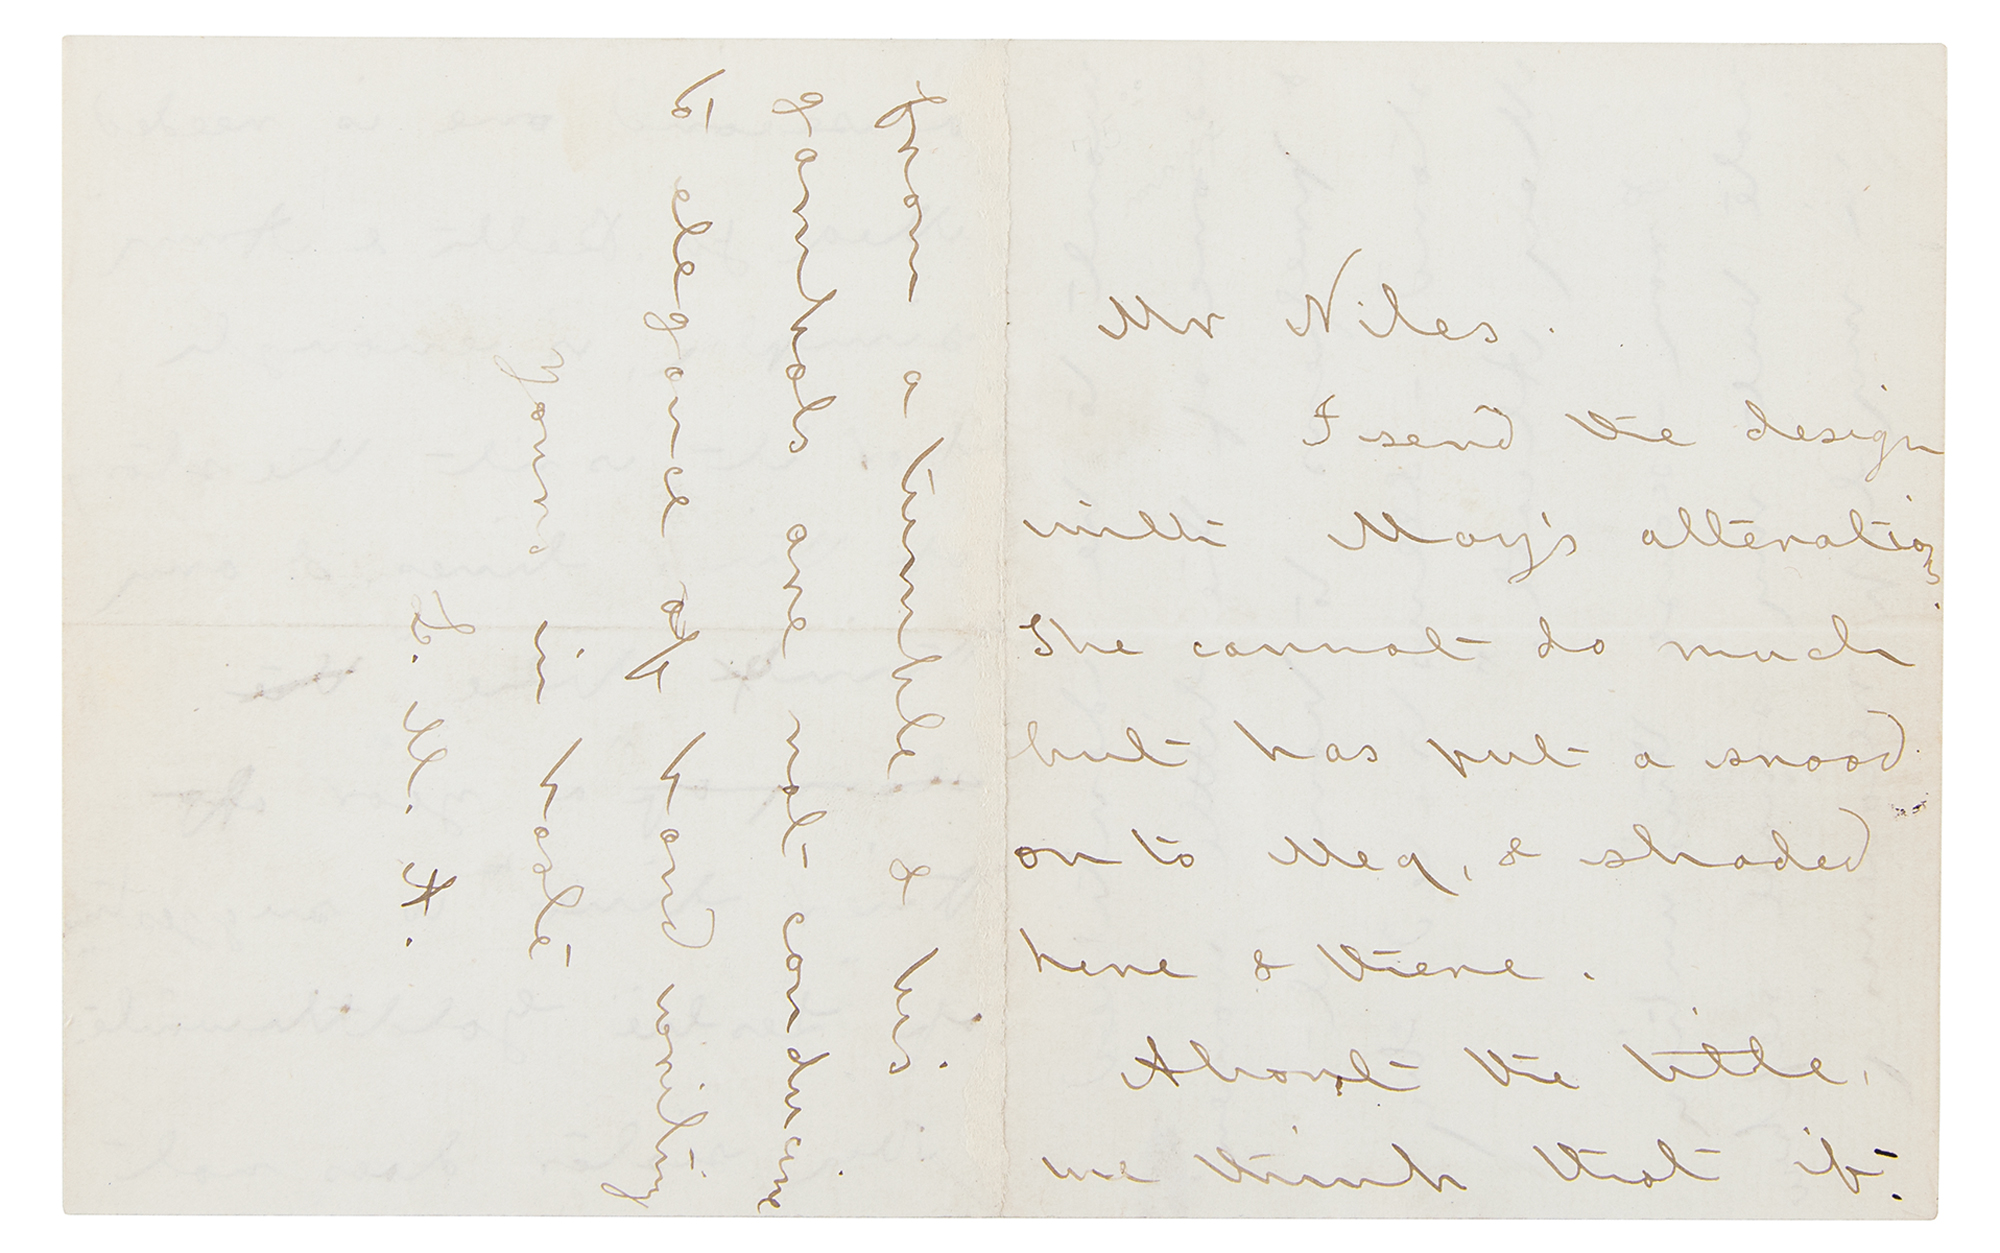 Mr Niles.
I send the design
with May's alterations
She cannot do much
but has put a snood
on to Meg, & shaded
here & there.
About the title,
we think that if
from a tumble & his
gambols are not conducive
to elegance of hand writing
Yours in haste
L. M. A.